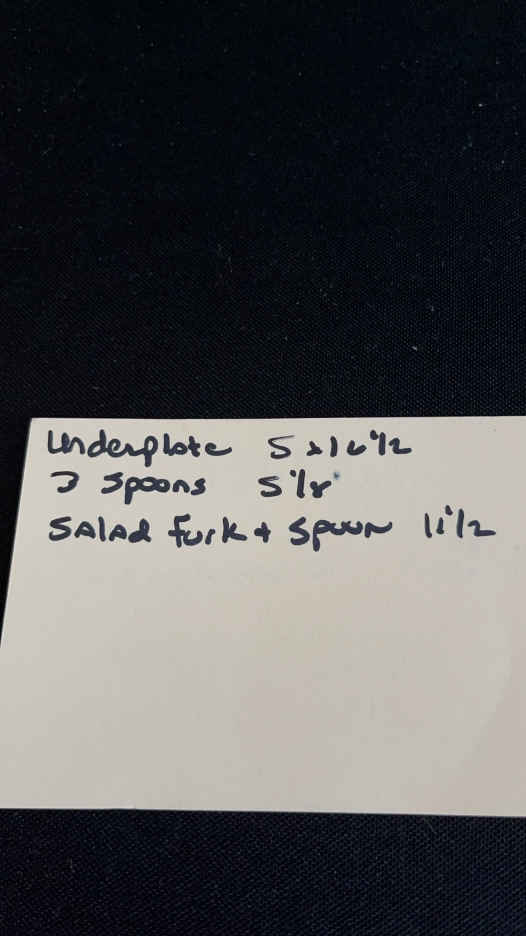 Underplate 5 x 16 1/2
3 Spoons 5 1/8"
SALAD Fork + Spoon 11 1/2